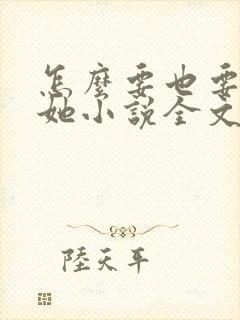 怎麼要也要不夠她小說全文
陸天平